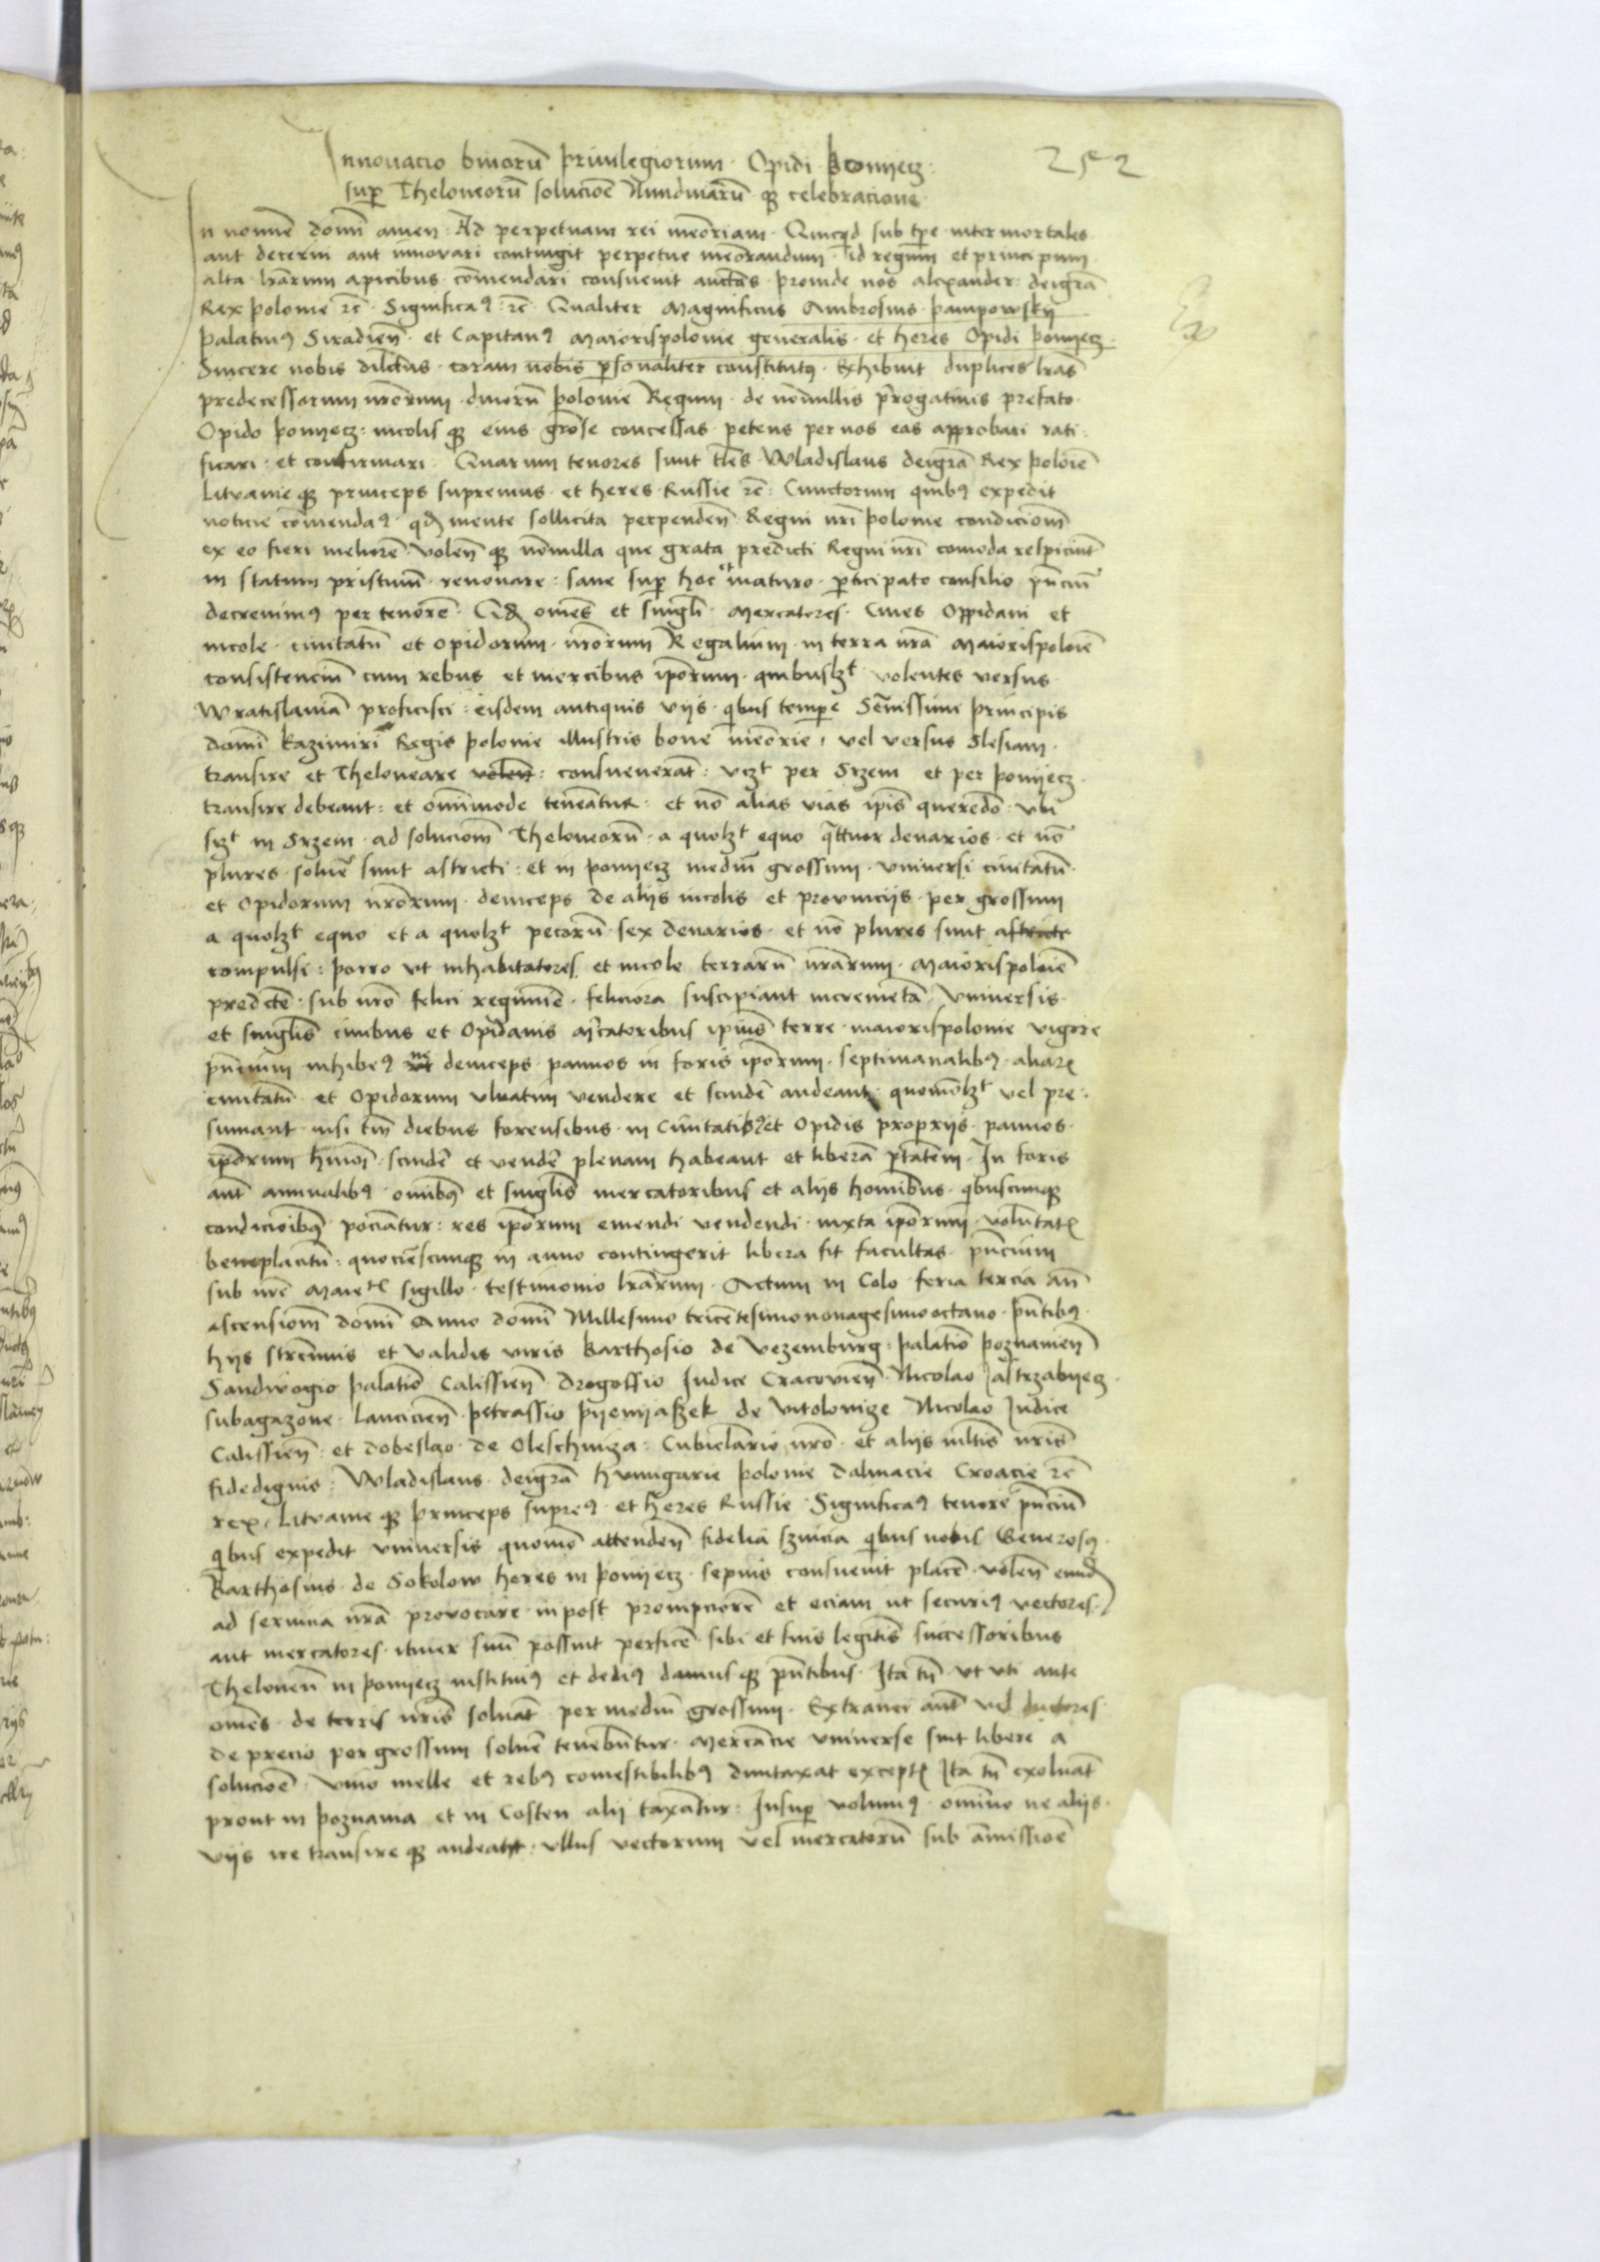 Innovacio binorū privilegiorum Opidi ponyecz
252
sup Theloneorū solucioē Nundinarū qz celebracione
In nomē domī amen Ad perpetuam rei meoriam Quicqd sub tpe inter mortales
aut decerni aut innovari contingit perpetue meorandum id regum et principum
alta lrarum apicibus comendari consuevit auctas proinde nos alexander deigrā
Rex polonie rē Significaꝰ rē Qualiter Magnificus Ambrosius pampowskÿ
palatinꝰ Siradieñ et Capitanꝰ Maiorispolonie generalis et heres Opidi ponyecz
Sincere nobis dilctus coram nobis psonaliter constitutꝰ Exhibuit duplices lras
predecessorum nrorum duorū polonie Regum de nonnullis progatiuis prefato
Opido ponyecz incolis qz eius grose concessas petens per nos eas approbari rati
ficari et confirmari Quarum tenores sunt tles Wladislaus deigrā Rex poloie
Litvanie qz princeps supremus et heres Russie rē Cunctorum quibꝰ expedit
noticie comendaꝰ qd mente sollicita perpendeñ Regni nri polonie condiciom
ex eo fieri meliorē voleñ qz nonnulla que grata predicti Regni nri comoda respiciut
in statum pristinū renovare sane sup hoc maturo pticipato consilio pñciū
decrevimꝰ per tenorē Qd omes et singli Mercatores Cives Oppidani et
incole civitatū et opidorum nrorum Regalium in terra nrā Maiorispoloie
consistenciū cum rebus et mercibus ipōrum quibuslꝫt volentes versus
Wratislaviā proficisci eisdem antiquis viis qbus tempe Sēnissimi principis
domī Kazimiri Regis polonie illustris bone meorie vel versus Slesiam
transire et Theloneare volen consueverāt vꝫt per Srzem et per ponyecz
transire debeant et omnimode teneātur et nō alias vias ipīs queredo vbi
sꝫt in Srzem ad soluciom Theloneorū a quolꝫt equo qttuor denarios et nō
plures solvē sunt astricti et in ponyecz mediū grossum vniversi civitatū
et Opidorum nrorum deinceps de aliis incolis et provinciis per grossum
a quolꝫt equo et a quolꝫt pecorū sex denarios et nō plures sunt astricti
compulsi porro vt inhabitatores et incole terrarū nrarum Maiorispoloie
predcte sub nrō felici regimīe feliciora suscipiant incremēta Vniversis
et singlis civibus et Opidanis mcatoribus ipius terre maiorispolonie vigore
pñcium inhibeꝰ ne deinceps pannos in foris ipōrum septimanalibꝰ aliarꝫ
civitatū et Opidorum vlnatim vendere et scindē audeant quomōlꝫt vel pre
sumant nisi tm diebus forensibus in Civitatibꝰ et Opidis propriis pannos
ipōrum hmōi scindē et vendē plenam habeant et liberā ptatem In foris
aut annualibꝰ omibꝫ et singlis mercatoribus et aliis homībus qbuscunqz
condicioibꝫ pociātur res ipōrum emendi vendendi iuxta ipōrum volūtatꝫ
beneplacitū quociēscunqz in anno contingerit libera sit facultas pñcium
sub nre Maietꝫ sigillo testimonio lrarum Actum in Colo feria tercia añ
ascensiom domi Anno domi Millesimo tricentesimo nonagesimo octavo pñtibꝰ
hiis strēnnuis et validis viris Barthosio de Vezemburg palatīo poznanieñ
Sandivogio palatīo Calissieñ Drogossio Iudice Cracovieñ Nicolao Jastrzabyecz
subagazone Lanicieñ petrassio pyenyaszek de Vitolovize Nicolao Iudice
Calissieñ et dobeslao de Oleschniza Cubiclario nrō et aliis mltis nris
fidedignis Wladislaus deigrā Hungarie polonie Dalmacie Croacie rē
rex Litvanie qz princeps supreꝰ et heres Russie Significaꝰ tenore pñciū
qbus expedit vniversis quomō attendeñ fidelia svicia qbus nobis Generosꝰ
Barthosius de Sokolow heres in ponyecz sepius consuevit placē voleñ eund
ad servicia nrā provocare in post prompciorē et eciam ut securiꝰ vectores
aut mercatores itiner suū possint perficē sibi et suis legitīs successoribus
Theloneū in ponyecz instituiꝰ et dediꝰ damus qz pñtibus Ita tñ vt vti ante
omēs de terris nris solvāt per mediū grossum Extranei aūt vel ductores
de precio per grossum solvē tenebūtur Mercācie vniverse sint libere a
solucioē vino melle et rebꝰ comestibilibꝰ duntaxat exceptꝫ Ita tñ exolvāt
prout in poznania et in Costen alii taxātur Insup volumꝰ omīno ne aliis
viis ire transire qz audeant vllus vectorum vel mercatorū sub amissioē